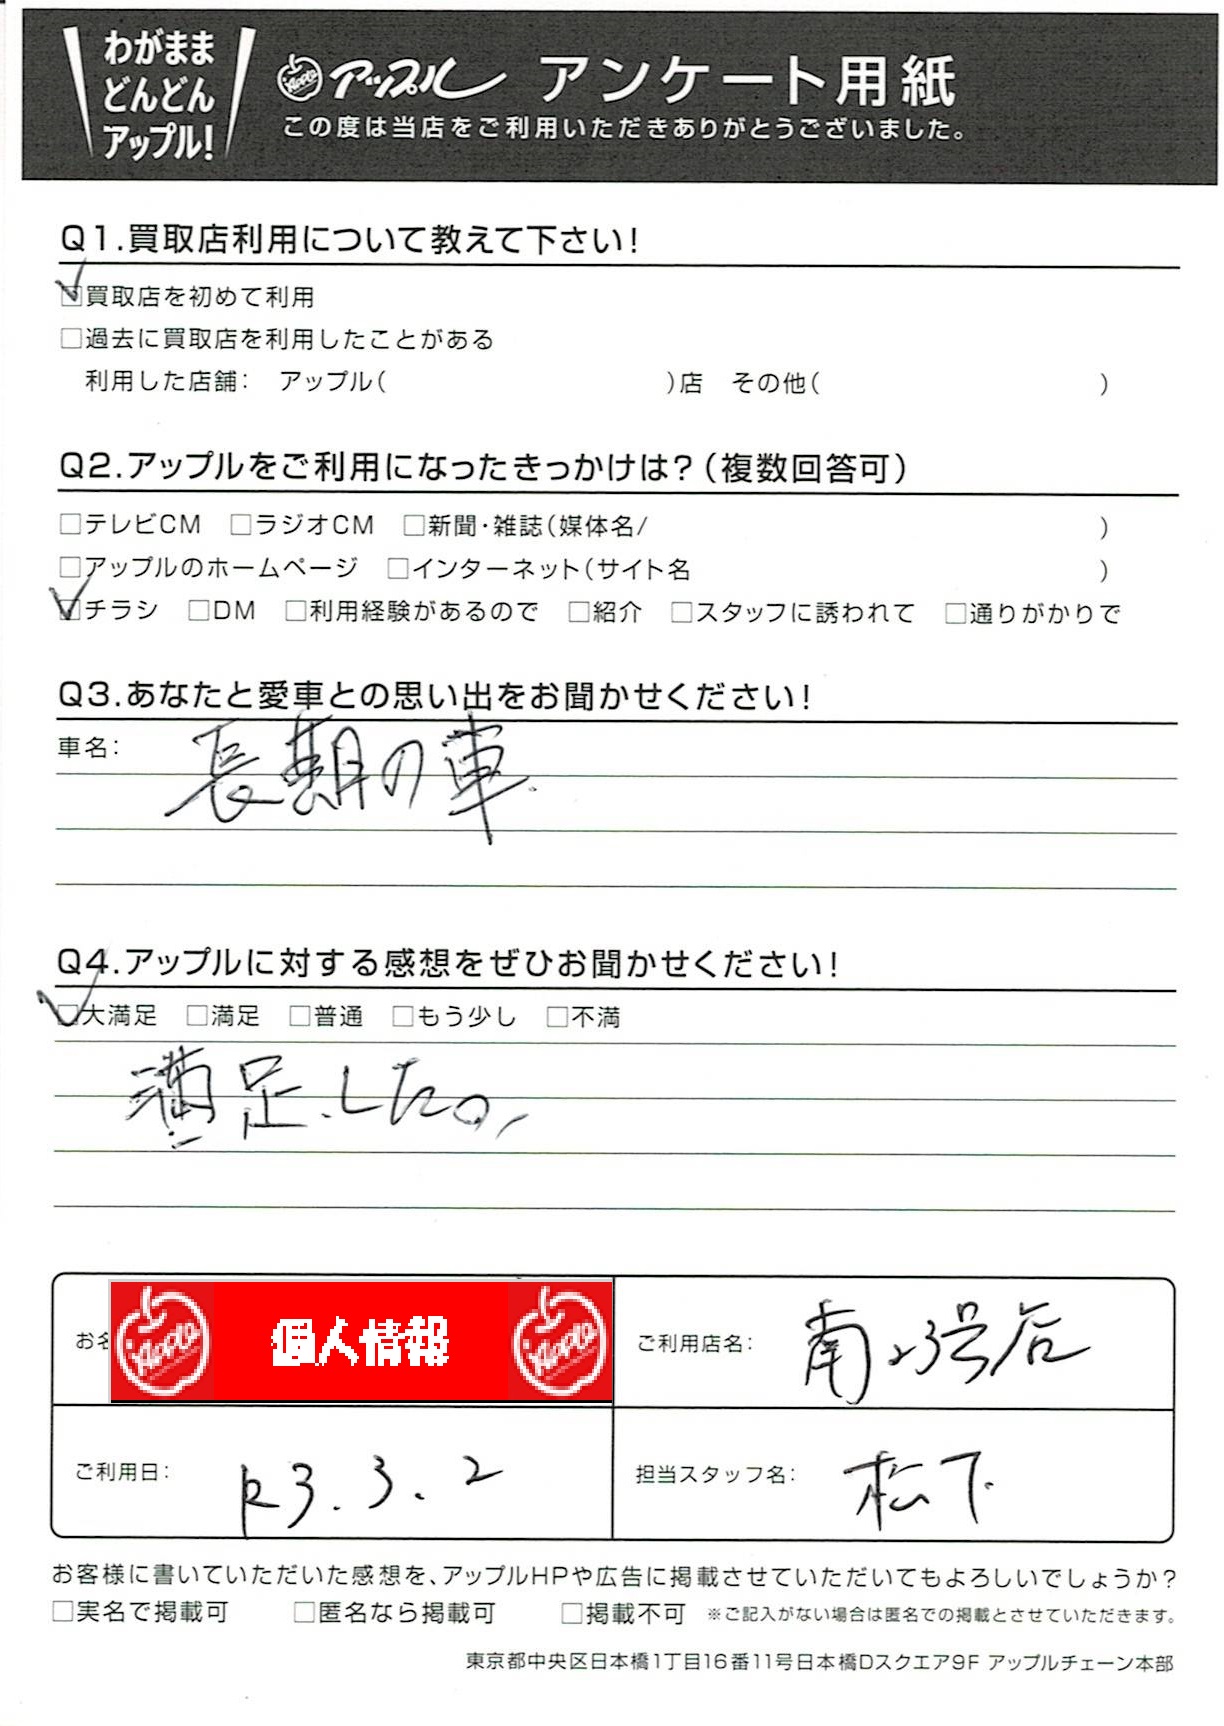 わがまま
どんどん
アップル!
Apple アップル アンケート用紙
この度は当店をご利用いただきありがとうございました。
Q1.買取店利用について教えて下さい!
☑買取店を初めて利用
□過去に買取店を利用したことがある
利用した店舗: アップル( )店 その他( )
Q2.アップルをご利用になったきっかけは?(複数回答可)
□テレビCM □ラジオCM □新聞・雑誌(媒体名/ )
□アップルのホームページ □インターネット(サイト名 )
☑チラシ □DM □利用経験があるので □紹介 □スタッフに誘われて □通りがかりで
Q3.あなたと愛車との思い出をお聞かせください!
車名:
長期の車.
Q4.アップルに対する感想をぜひお聞かせください!
☑大満足 □満足 □普通 □もう少し □不満
満足した。
お名 Apple 個人情報 Apple
ご利用店名: 南23号店
ご利用日: R3.3.2
担当スタッフ名: 松下
お客様に書いていただいた感想を、アップルHPや広告に掲載させていただいてもよろしいでしょうか?
□実名で掲載可 □匿名なら掲載可 □掲載不可 ※ご記入がない場合は匿名での掲載とさせていただきます。
東京都中央区日本橋1丁目16番11号日本橋Dスクエア9F アップルチェーン本部